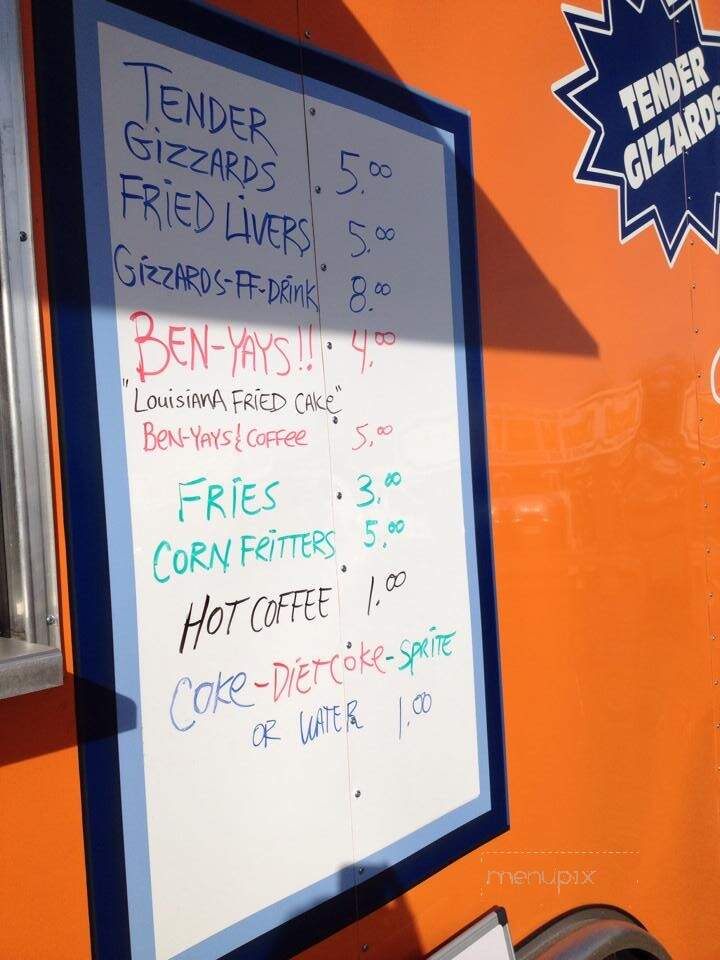 TENDER
GIZZARDS 5.00
FRIED LIVERS 5.00
GIZZARDS-FF-DRINK 8.00
BEN-YAYS!! 4.00
"LOUISIANA FRIED CAKE"
BEN-YAYS & COFFEE 5.00
FRIES 3.00
CORN FRITTERS 5.00
HOT COFFEE 1.00
COKE-DIET COKE-SPRITE
OR WATER 1.00
TENDER
GIZZARDS
menupix